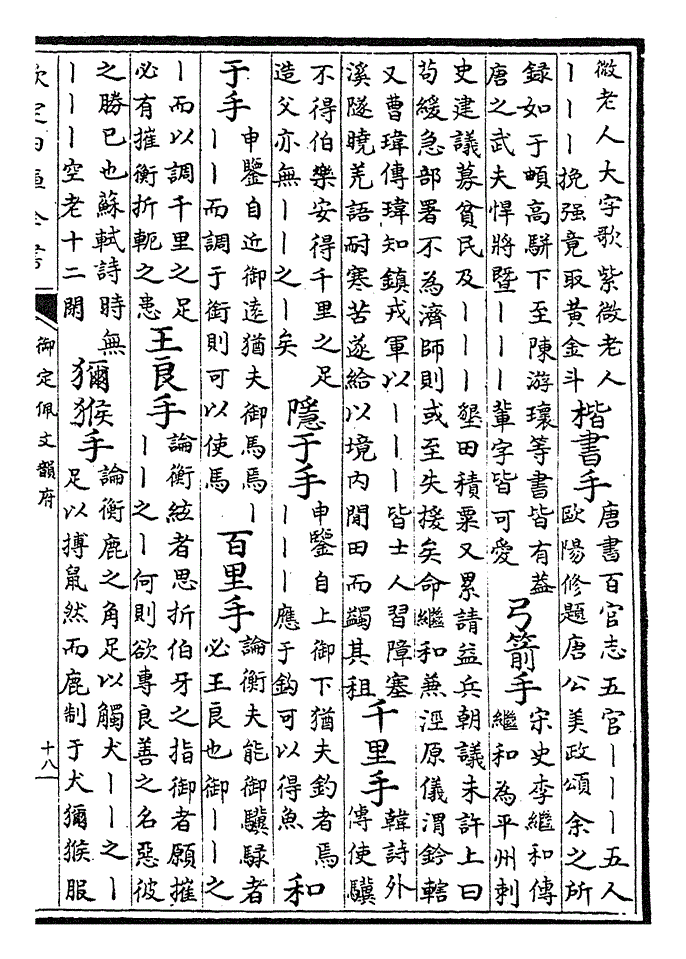 微老人大字歌紫微老人
丨丨丨挽强竟取黃金斗
楷書手
唐書百官志五官丨丨丨五人
歐陽修題唐公美政頌余之所
錄如于頔高駢下至陳游瓌等書皆有葢
唐之武夫悍將暨丨丨丨輩字皆可愛
弓箭手
宋史李繼和傳
繼和為平州刺
史建議募貧民及丨丨丨墾田積粟又累請益兵朝議未許上曰
茍緩急部署不為濟師則或至失援矣命繼和兼涇原儀渭鈐轄
又曹瑋傳瑋知鎮戎軍以丨丨丨皆士人習障塞
溪隧曉羌語耐寒苦遂給以境內閒田而蠲其租
千里手
韓詩外
傳使驥
不得伯樂安得千里之足
造父亦無丨丨之丨矣
隱于手
申鑒自上御下猶夫釣者焉
丨丨丨應于鈎可以得魚
和
于手
申鑒自近御逺猶夫御馬焉丨
丨丨而調于銜則可以使馬
百里手
論衡夫能御驥騄者
必王良也御丨丨之
丨而以調千里之足
必有摧衡折軛之患
王良手
論衡絃者思折伯牙之指御者願摧
丨丨之丨何則欲專良善之名惡彼
之勝已也蘇軾詩時無
丨丨丨空老十二閑
獼猴手
論衡鹿之角足以觸犬丨丨之丨
足以搏鼠然而鹿制于犬獼猴服
欽定四庫全書
御定佩文韻府
十八